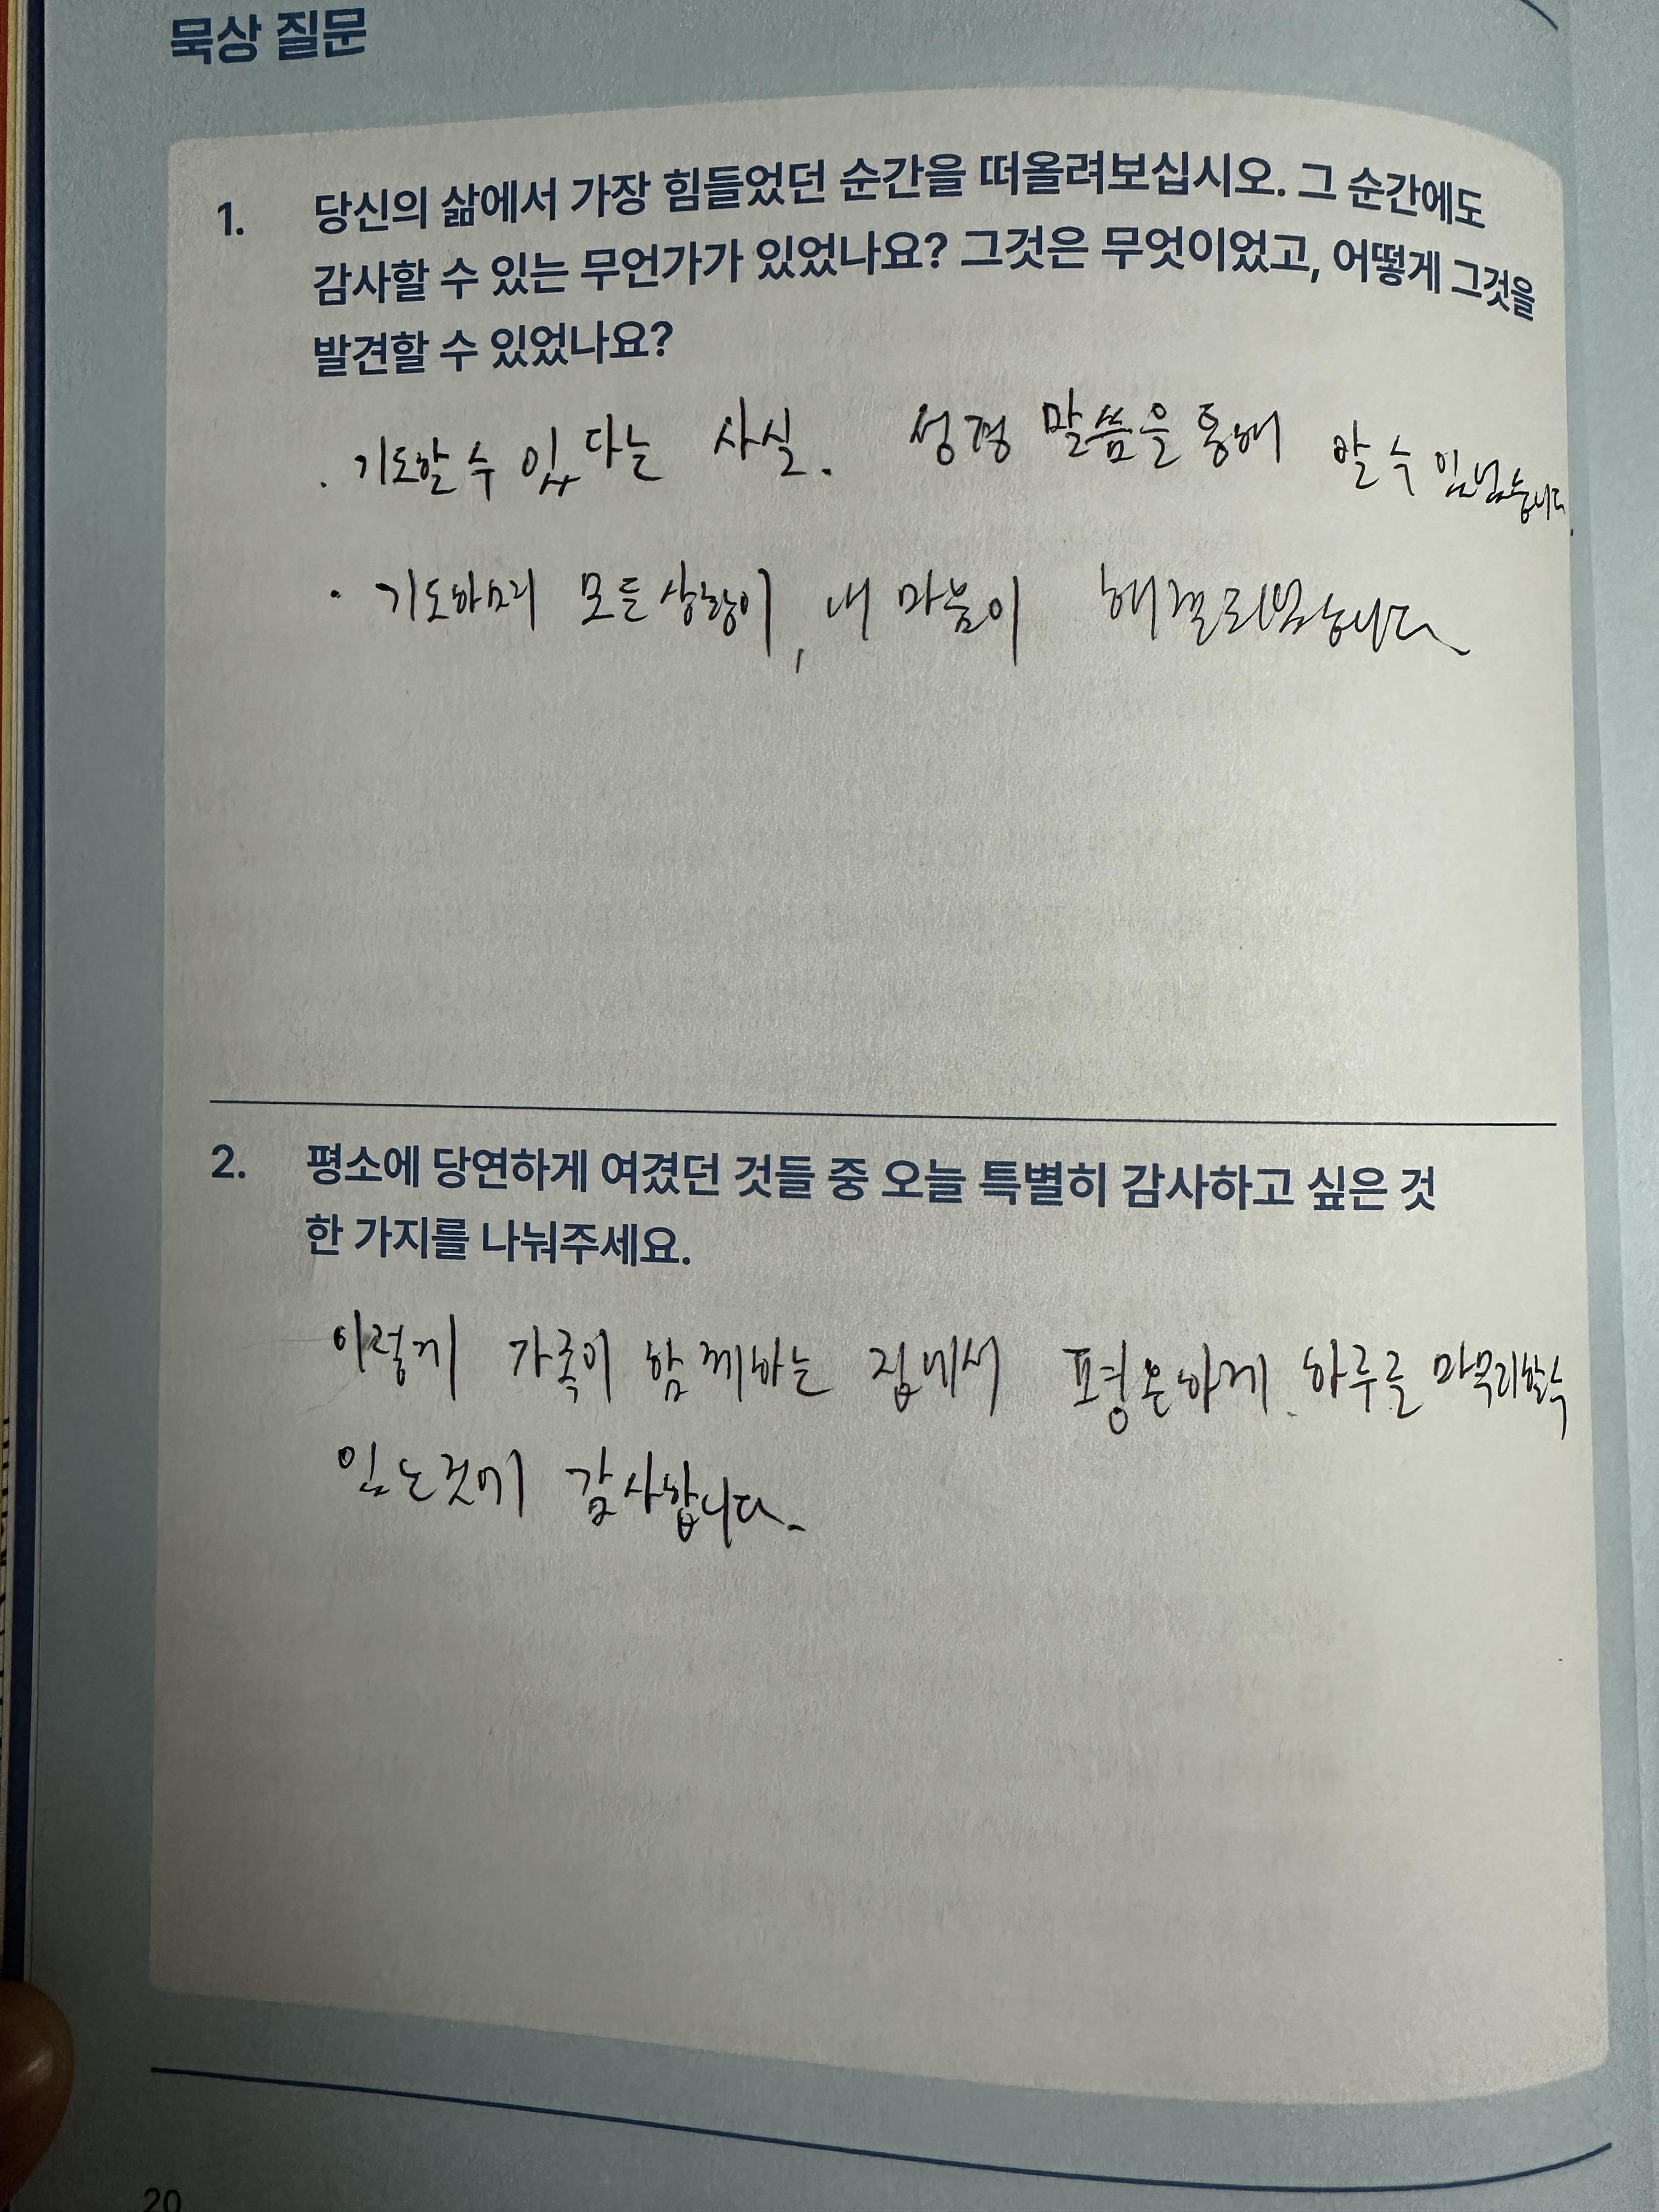 묵상 질문
1. 당신의 삶에서 가장 힘들었던 순간을 떠올려보십시오. 그 순간에도
감사할 수 있는 무언가가 있었나요? 그것은 무엇이었고, 어떻게 그것을
발견할 수 있었나요?
. 기도할 수 있다는 사실. 성경 말씀을 통해 알 수 있었습니다.
· 기도하며 모든 상황이, 내 마음이 해결되었습니다
2. 평소에 당연하게 여겼던 것들 중 오늘 특별히 감사하고 싶은 것
한 가지를 나눠주세요.
이렇게 가족이 함께하는 집에서 평온하게 하루를 마무리할수
있는것에 감사합니다.
20